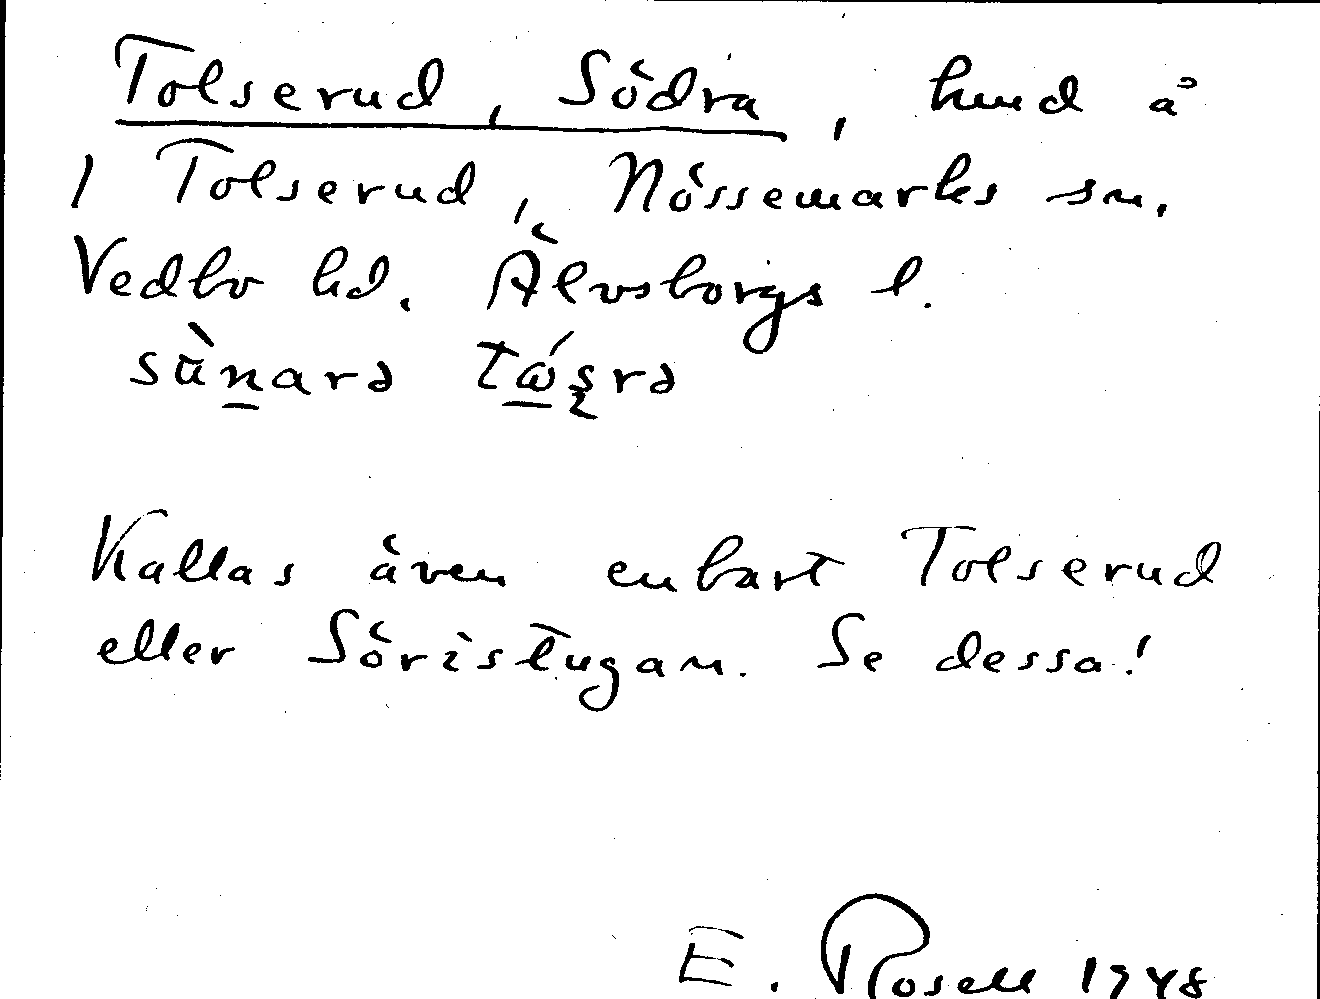 Tolserud, Södra, hmd å
1 Tolserud, Nössemarks sn.
Vedbo hd. Älvsborgs l.
Kallas även enbart Tolserud
eller Söristugan. Se dessa!
E. Rosell 1948